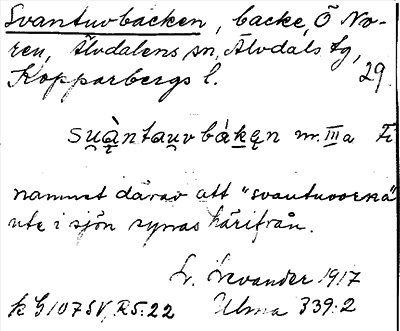 Svantuvbacken, backe, Ö No-
ren, Älvdalens sn, Älvdals tg,
Kopparbergs l. 29.
suàntauv bàken m. III a Fi
namnet därav att "svantuvorna"
ute i sjön synas härifrån.
L. Levander 1917
k G 107 SV, R5:22 Ulma 339:2